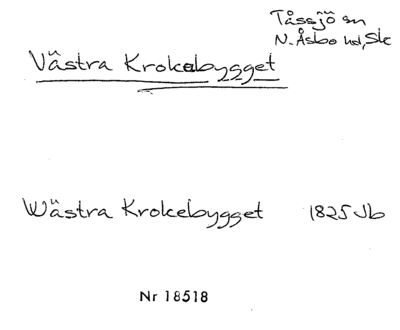 Tåssjö sn
N. Åsbo hd, Sk
Västra Krokebygget
Wästra Krokebygget 1825 Jb
Nr 18518